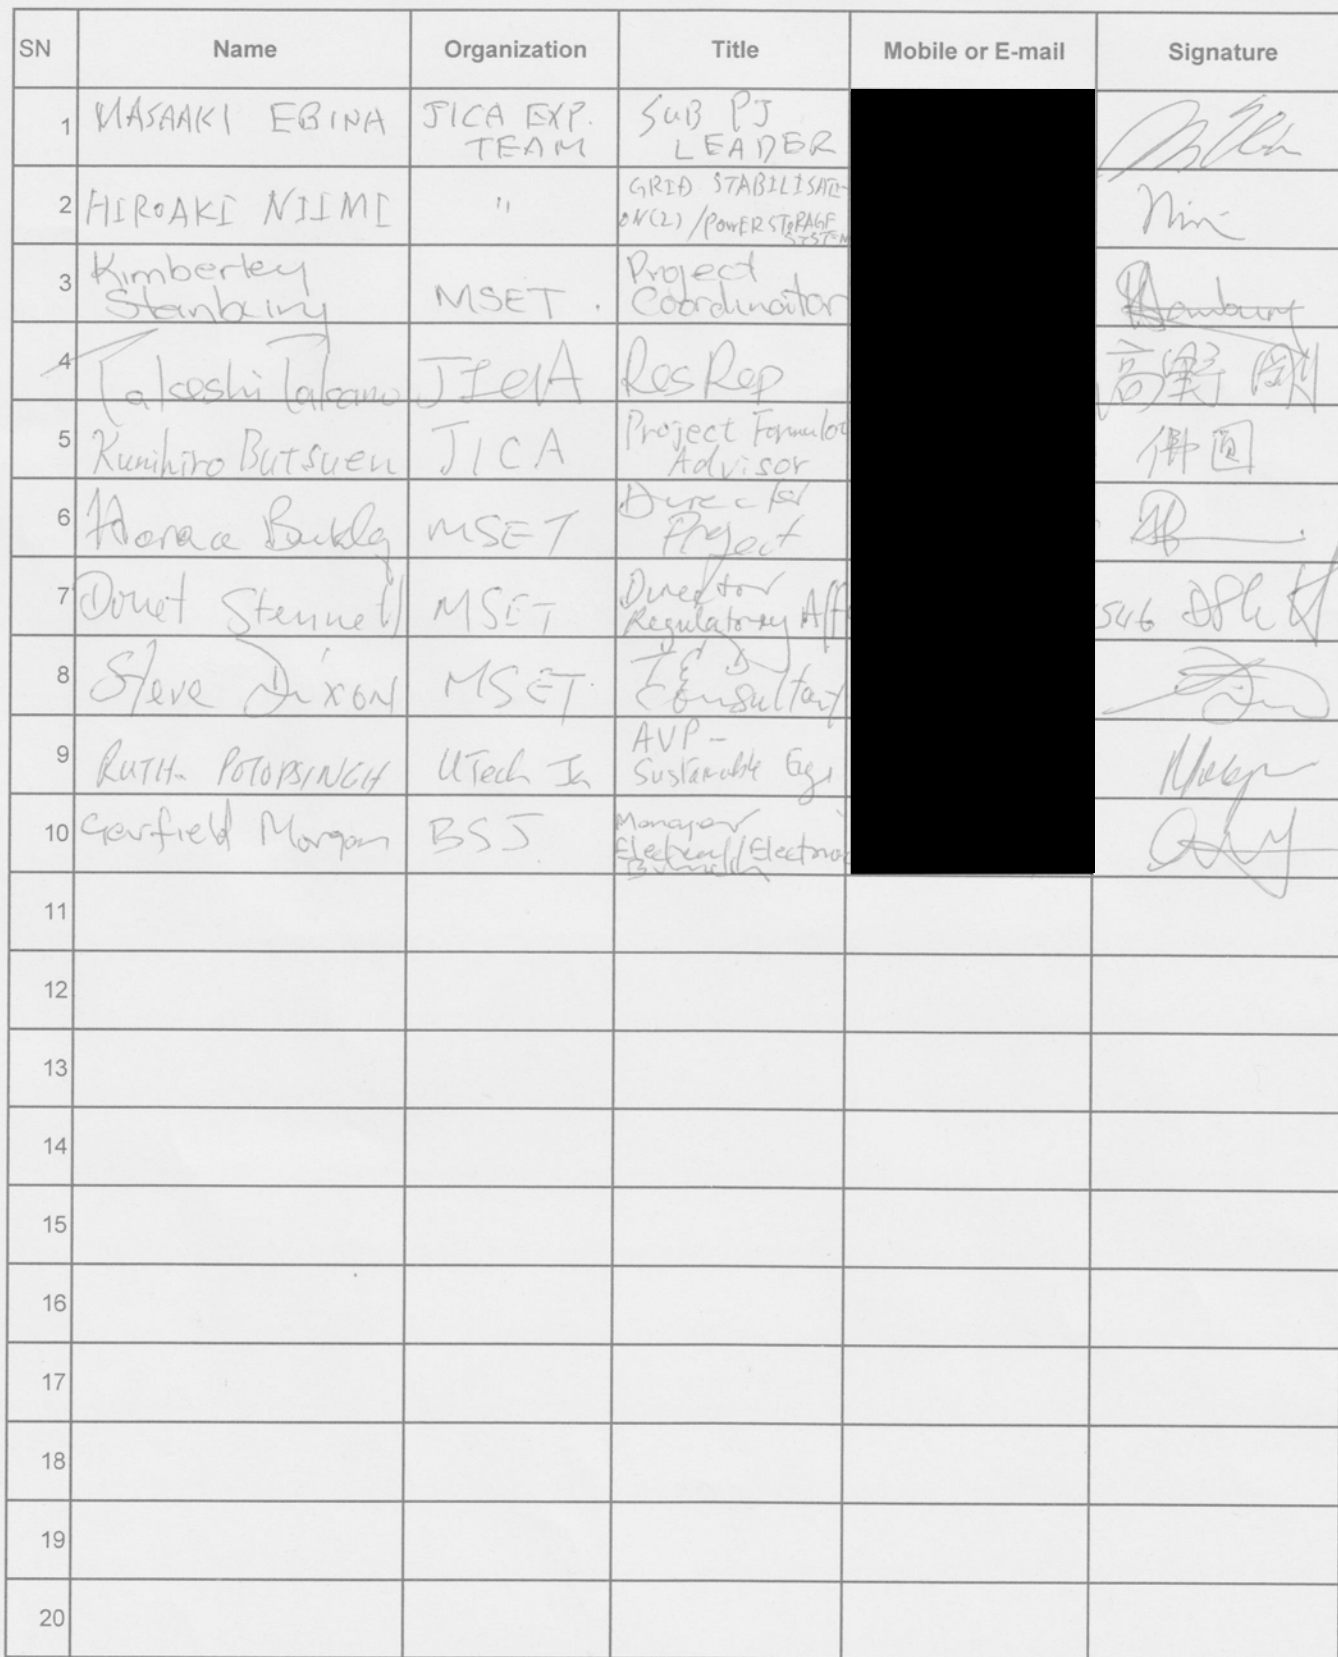 SN Name Organization Title Mobile or E-mail Signature
1 MASAAKI EBINA JICA EXP. TEAM SUB PJ LEADER
2 HIROAKI NIIMI " GRID STABILISATI- ON(2)/POWER STORAGE SYSTEM
3 Kimberley Stanbury MSET. Project Coordinator Stanbury
4 Takeshi Takano JICA Res Rep 高野 剛
5 Kunihiro Butsuen JICA Project Formulat Advisor 佛圓
6 Horace Buckley MSET Director Project
7 Donet Stennett MSET Director Regulatory Aff 546
8 Steve Dixon MSET. T & D Consultant
9 RUTH POTOPSINGH UTech Ja AVP- Sustainable
10 Garfield Morgan BSJ Manager Electrical/Electronic
11
12
13
14
15
16
17
18
19
20